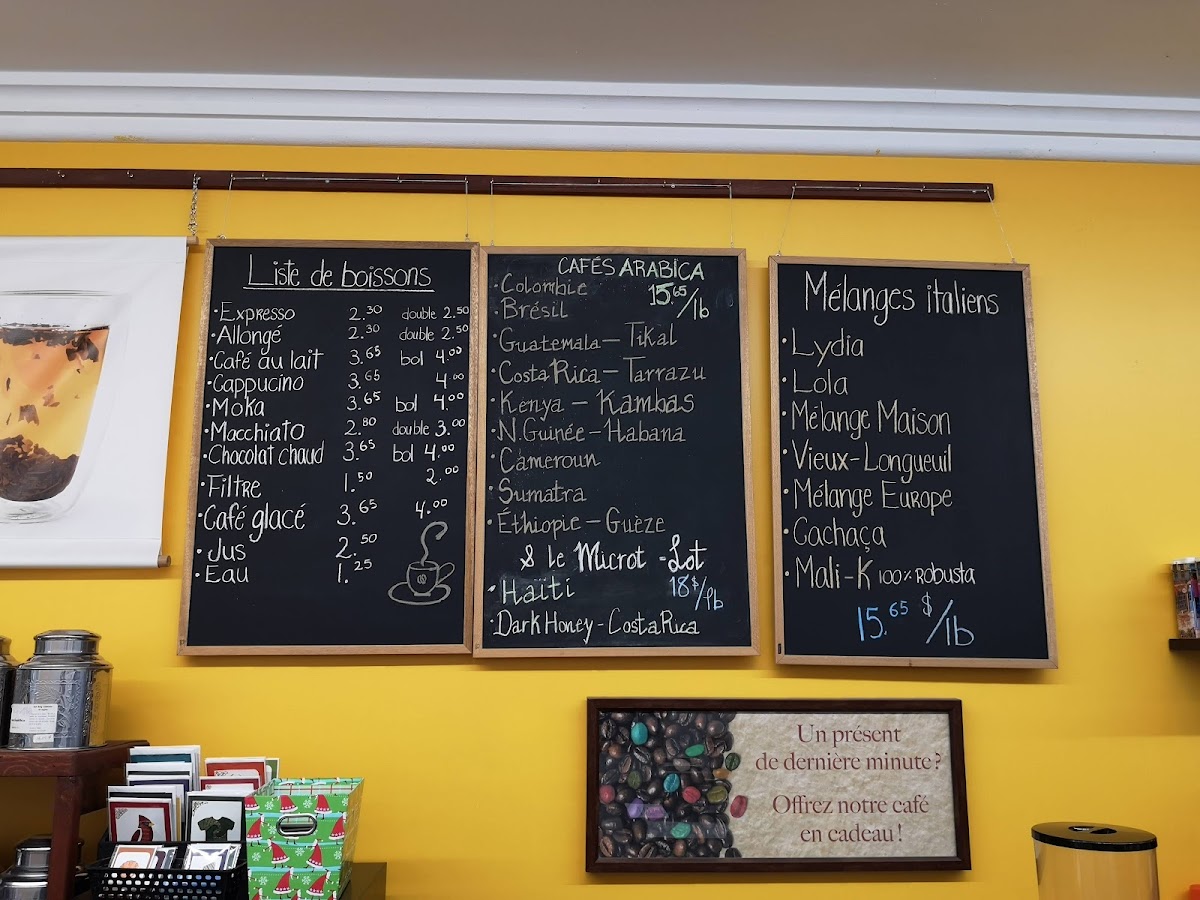 Liste de boissons
·Expresso 2.30 double 2.50
·Allongé 2.30 double 2.50
·Café au lait 3.65 bol 4.00
·Cappucino 3.65 4.00
·Moka 3.65 bol 4.00
·Macchiato 2.80 double 3.00
·Chocolat chaud 3.65 bol 4.00
·Filtre 1.50 2.00
·Café glacé 3.65 4.00
·Jus 2.50
·Eau 1.25
CAFÉS ARABICA
·Colombie 15.65/lb
·Brésil
·Guatemala—Tikal
·Costa Rica—Tarrazu
·Kenya — Kambas
·N.Guinée-Habana
·Cameroun
·Sumatra
·Éthiopie—Guèze
& le Microt-Lot
·Haïti 18$/lb
·Dark Honey-Costa Rica
Mélanges italiens
·Lydia
·Lola
·Mélange Maison
·Vieux-Longueuil
·Mélange Europe
·Cachaça
·Mali-K 100% Robusta
15.65 $/lb
Un présent
de dernière minute?
Offrez notre café
en cadeau!